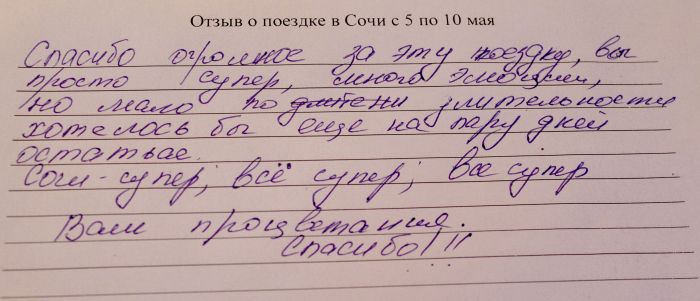 Отзыв о поездке в Сочи с 5 по 10 мая
Спасибо огромное за эту поездку, вы
просто супер, много эмоций,
но мало по длительности
хотелось бы еще на пару дней
остатьс.
Сочи - супер, всё супер, все супер
Вам процветания.
Спасибо!!!